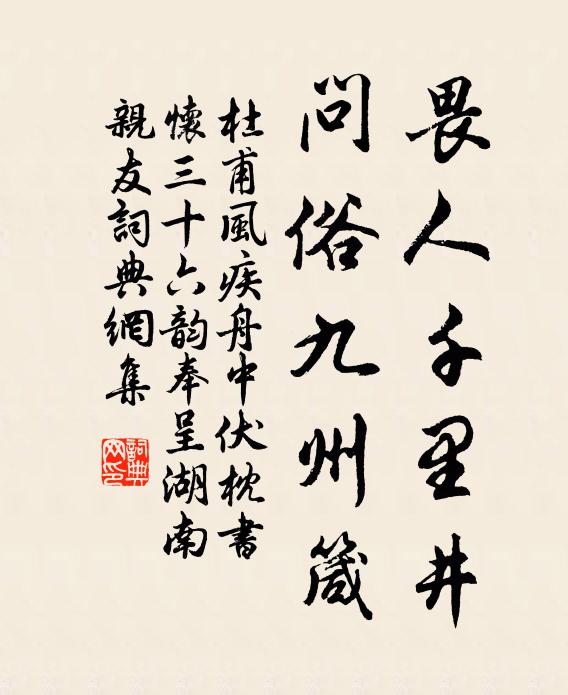 畏人千里井
問俗九州箴
杜甫風疾舟中伏枕書
懷三十六韵奉呈湖南
親友詞典網集
詞典網印